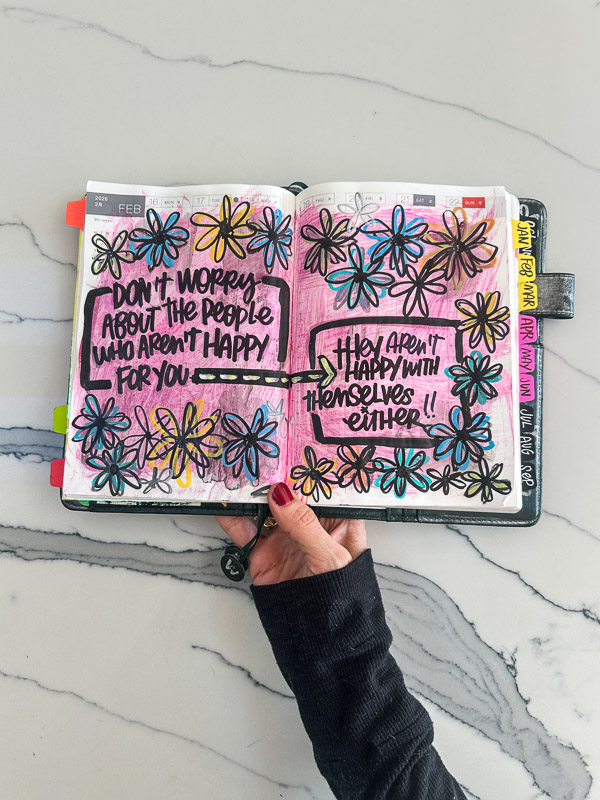 2026
2月
FEB
16 MON
17 TUE
19
20 FRI
21 SAT
22 SUN
DON'T WORRY
ABOUT THE PEOPLE
WHO AREN'T HAPPY
FOR YOU
HEY AREN'T
HAPPY WITH
THEMSELVES
EITHER!!
JAN
FEB
MAR
APR
MAY
JUN
JUL
AUG
SEP